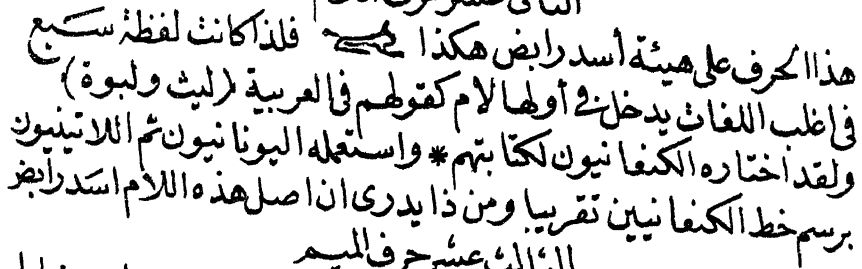 الثاني عشر حرف اللام
هذا الحرف على هيئة أسد رابض هكذا فلذا كانت لفظة سبع
في اغلب اللغات يدخل في أولها لام كقولهم في العربية (ليث ولبوة)
ولقد اختاره الكنعانيون لكتابتهم * واستعمله اليونانيون ثم اللاتينيون
برسم خط الكنعانيين تقريبا ومن ذا يدرى ان اصل هذه اللام اسد رابض
الثالث عشر حرف الميم